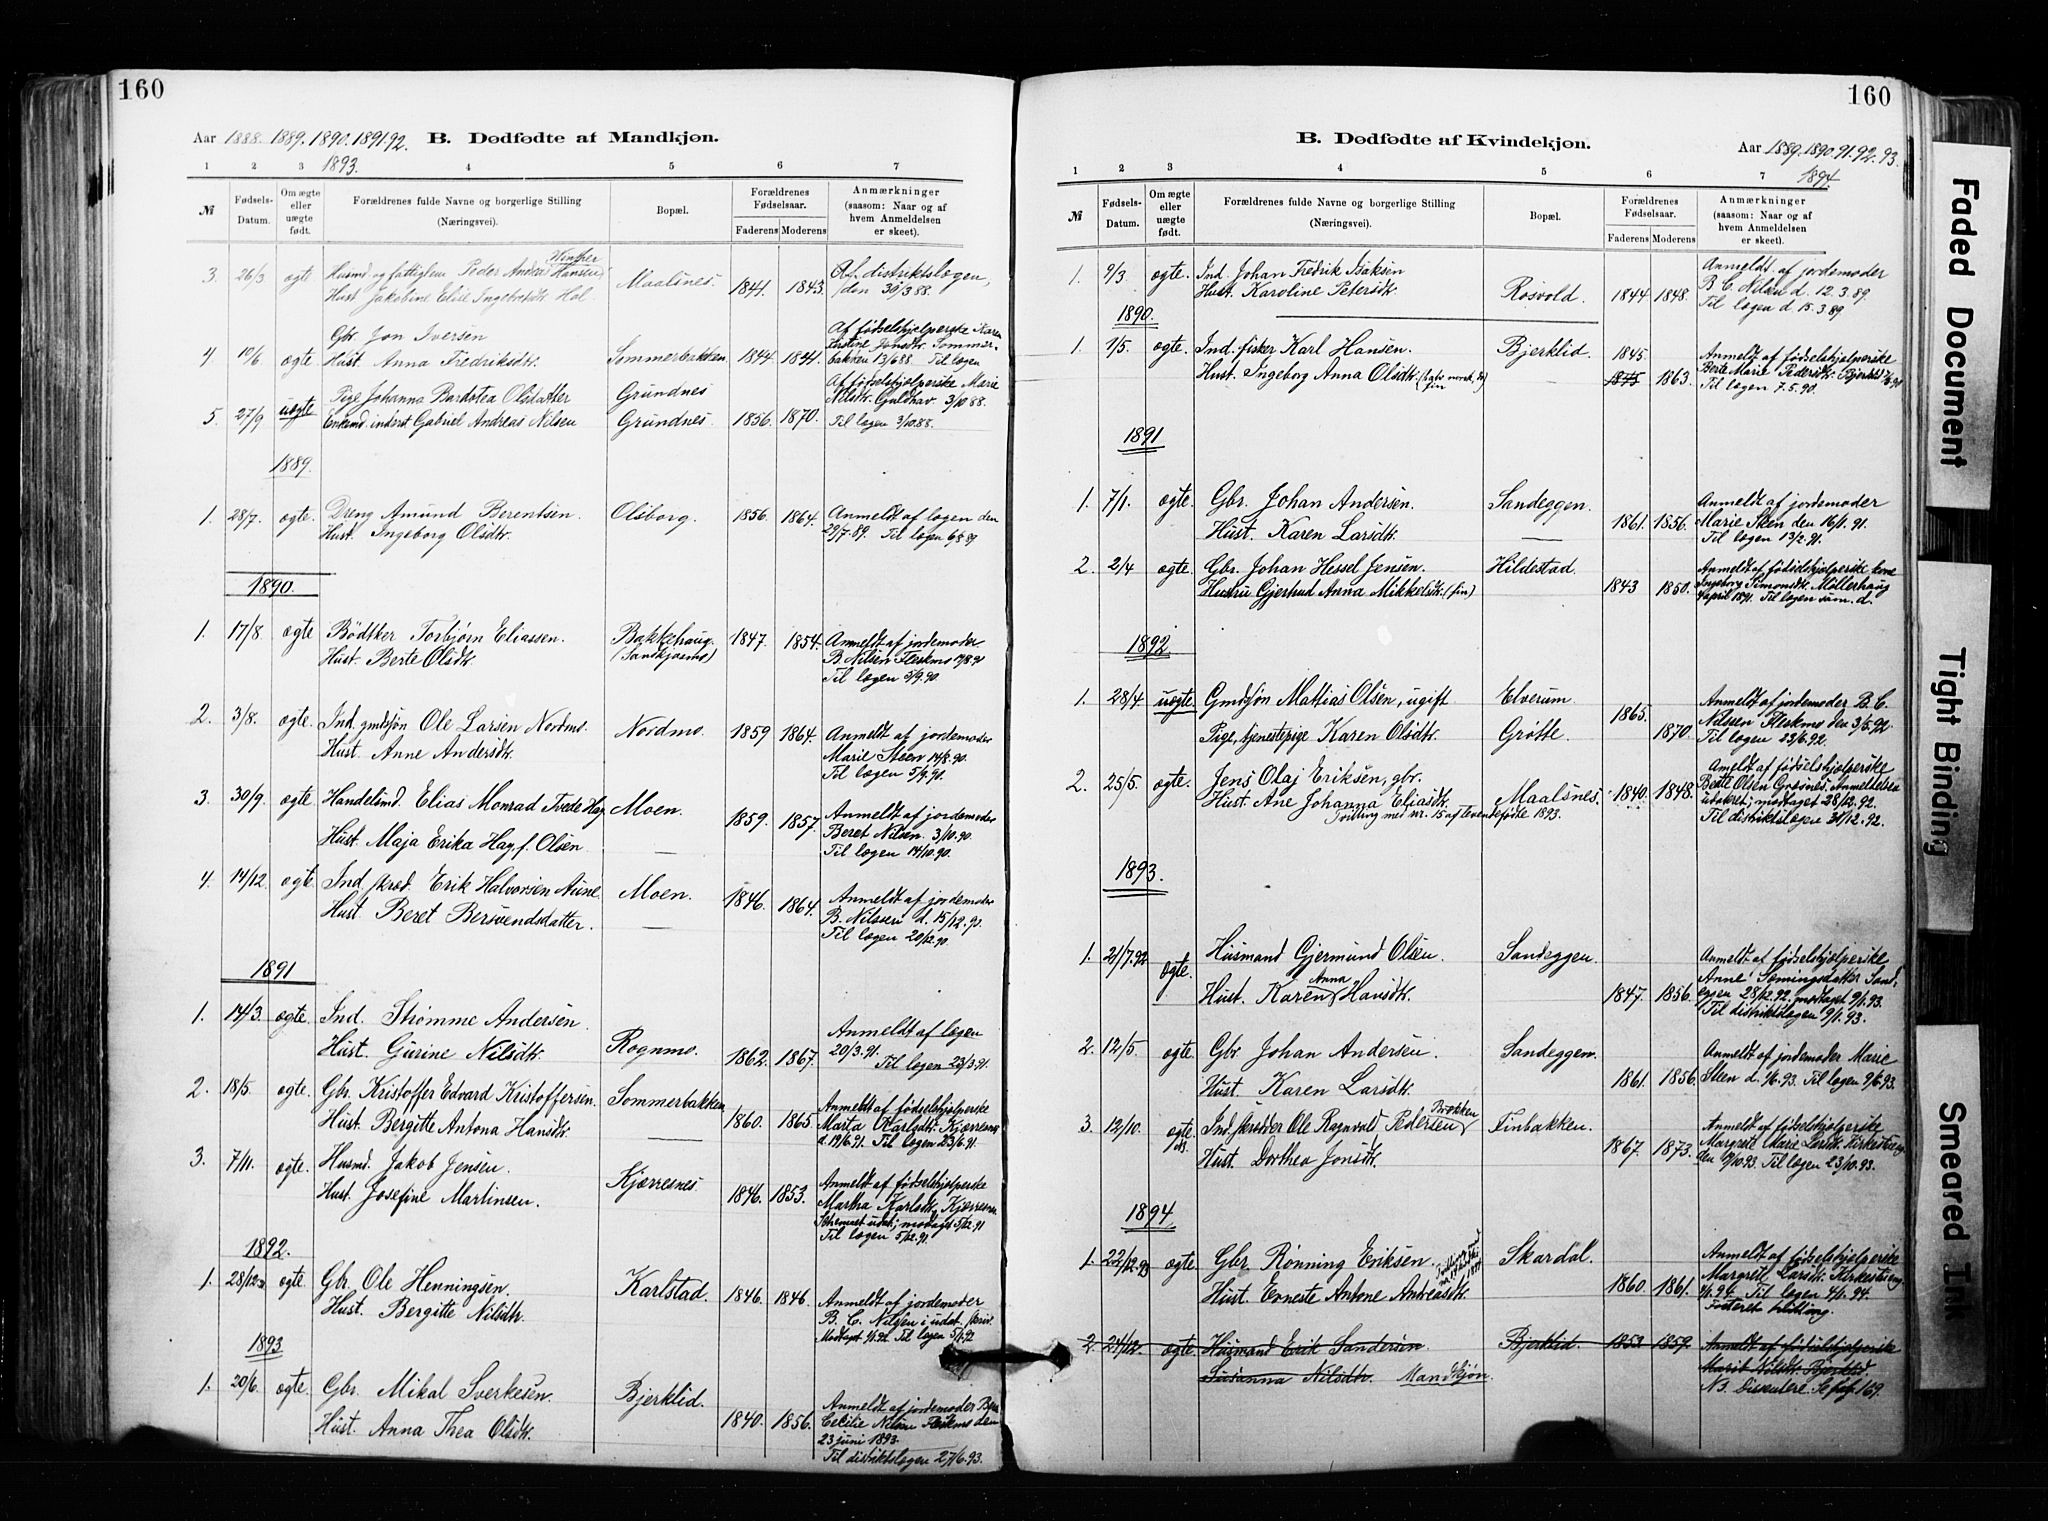 160
Aar 1888. 1889. 1890. 1891. 92. B. Dødfødte af Mandkjøn.
1893.
1 2 3 4 5 6 7
№ Fødsels-Datum. Om ægte eller uægte født. Forældrenes fulde Navne og borgerlige Stilling (Næringsvei). Bopæl. Forældrenes Fødselsaar. Faderens Moderens Anmærkninger (saasom: Naar og af hvem Anmeldelsen er skeet).
3. 26/3 ægte Husmd og fattiglem Peder Andreas Winther Hansen Maalsnes. 1841. 1843. Af distriktslægen,
Hust. Jakobine Elise Ingebrdtr. den 30/3 88.
Gbr. Jon Iversen Af fødselshjelperske Karen
4 10/6 ægte Hust. Anna Fredriksdtr. Sommerbakken 1844. 1841. bakken 13/6 88. Til lægen
Pige Johanna Bardotea Olsdatter Grundnes Af fødselshjelperske Marie
5. 27/9 uægte Enkemd. inderst Gabriel Andreas Nilsen Grundnes 1856. 1870. Til lægen 3/10 88.
1889.
1. 28/7. ægte. Dreng Amund Berentsen. Olsborg. 1856. 1864. Anmeldt af lægen den
Hust. Ingeborg Olsdtr. 29/7. 89. Til lægen 6/8 89
1890.
1. 17/8. ægte Bødtker Torbjørn Eliassen. Bakkehaug. 1847. 1854. Anmeldt af jordemoder
Hust. Berte Olsdtr. B. Nilsen Fleskmo
Til lægen 3/9. 90.
2. 3/8. ægte. Ind. gmdsøn Ole Larsen Nordmo. Nordmo. 1859 1864. Anmeldt af jordemoder
Hust. Anne Andersdtr. Marie Steen 14/8. 90.
Til lægen 5/9. 90.
3. 30/9. ægte Handelsmd. Elias Monrad Tvede Hay Moen. 1859. 1857. Anmeldt af jordemoder
Hust. Maja Erika Hay, f. Olsen — Beret Nilsen. 3/10. 90.
Til lægen 14/10. 90.
4. 14/12. ægte Ind. skræd. Erik Halvorsen Aune. Moen. 1846. 1864. Anmeldt af jordemoder
Hust. Beret Bersvendsdatter. — B. Nilsen d. 15/12. 90.
Til lægen 20/12. 90.
1891
1. 14/3. ægte. Ind. Strømme Andersen Anmeldt af lægen
Hust. Gurine Nilsdtr. Rognmo. 1862. 1867. 20/3. 91. Til lægen 23/3. 91.
2. 18/5. ægte. Gbr. Kristoffer Edvard Kristoffersen. Sommerbakken 1860. 1865. Anmeldt af fødselshjelperske
Hust. Bergitte Antona Hansdtr. — Marta Karlsdtr. Kjærresnes
d. 19/6. 91. Til lægen 23/6. 91.
3. 7/11. ægte. Husmd. Jakob Jensen. Kjærresnes. 1846. 1853. Anmeldt af fødselshjelperske
Hust. Josefine Martinsen. Martha Karlsdtr. Kjærresnes
modtaget 5/12. 91
Til lægen 5/12. 91.
1892.
1. 28/12 ægte. Gbr. Ole Henningsen. Karlstad. 1846. 1846. Anmeldt af jordemoder
Hust. Bergitte Nilsdtr. B. C. Nilsen i udat. skriv.
1893
1. 20/6. ægte. Gbr. Mikal Sverkesen. Bjerklid. 1840. 1856. Anmeldt af jordemoder
Hust. Anna Thea Olsdtr. Cecilie Nilsen Fleskmo den
23 juni 1893.
Til distriktslægen 27/6. 93.
160
B. Dødfødte af Kvindekjøn. Aar 1889. 1890. 91. 92. 93.
1894.
1 2 3 4 5 6 7
№ Fødsels-Datum. Om ægte eller uægte født. Forældrenes fulde Navne og borgerlige Stilling (Næringsvei). Bopæl. Forældrenes Fødselsaar. Faderens Moderens Anmærkninger (saasom: Naar og af hvem Anmeldelsen er skeet).
1. 9/3 ægte. Ind. Johan Fredrik Isaksen Anmeldt af jordemoder
Hust. Karoline Petersdtr. Rosvold. 1844. 1848. B. C. Nilsen d. 12. 3. 89.
Til lægen d. 15. 3. 89
1890.
1. 1/5. ægte. Ind. fisker Karl Hansen. Bjerklid. 1845. Anmeldt af fødselshjelperske
Hust. Ingeborg Anna Olsdtr. — 1875 1863. Berte Marie Pedersdtr. Bjerklid
Til lægen 7. 5. 90.
1891
1. 7/1. ægte. Gbr. Johan Andersen. Sandeggen. 1861. 1856. Anmeldt af jordemoder
Hust. Karen Larsdtr. — Marie Steen den 16/1. 91.
Til lægen 13/2. 91.
2. 2/4 ægte. Gbr. Johan Hessel Jensen. Hildestad. 1843 1850. Anmeldt af fødselshjelperske
Hustru Gjertrud Anna Mikkelsdtr. (fin) — Ingeborg Simonsdtr. Møllerhaug
april 1891. Til lægen sam. d.
1892
1. 28/4. uægte. Gmdsøn Mattias Olsen, ugift Elverum 1865. Anmeldt af jordemoder B. C.
Pige, tjenestepige Karen Olsdtr. Grøtte. 1870. Nilsen Fleskmo den 3/5. 92.
Til lægen 23/6. 92.
2. 25/5. ægte. Jens Olaj Eriksen, gbr. Anmeldt af fødselshjelperske
Hust. Ane Johanna Eliasdtr. Maalsnes. 1840. 1848. Berte Olsen Grasnes. Anmeldelsen
Tvilling med nr. 15 af levendefødte 1893. udateret; modtaget 28/12. 92.
Til distriktslægen 31/12. 92.
1893.
1. 21/7. 92 ægte. Husmand Gjermund Olsen. Sandeggen. Anmeldt af fødselshjelperske
Hust. Karen Anna Hansdtr. 1847. 1856. Anne Sømingsdatter Sand-
eggen 28/12. 92. modtaget 9/1. 93.
Til distriktslægen 9/1. 93.
2. 12/5. ægte. Gbr. Johan Andersen. Sandeggen. Anmeldt af jordemoder Marie
Hust. Karen Larsdtr. 1861. 1856. Steen d. 1/6. 93. Til lægen 9/6. 93.
3. 12/10. ægte Ind. skrædder Ole Ragnvald Pedersen Brækken Finbakken. Anmeldt af fødselshjelperske
ds. Hust. Dorthea Jonsdtr. 1867. 1873. Margrete Marie Larsdtr. Kirkestueng
den 19/10. 93. Til lægen 23/10. 93.
1894
1. 22/12. 93 ægte. Gbr. Rønning Eriksen. Skardal. Anmeldt af fødselshjelperske
Hust. Erneste Antone Andreasdtr. 1860. 1861. Margrete Larsdtr. Kirkestueng
4/1. 94. Til lægen 4/1. 94.
2. 24/12. ægte. Husmand Erik Sandersen. Bjerklid. 1853. 1859. Anmeldt af fødselshjelperske
Susanna Nilsdtr. Mandkjøn. Marit Nilsdtr. Bjerklid
No. Diskutere. Se pag. 169.
Faded Document
Tight Binding
Smeared Ink